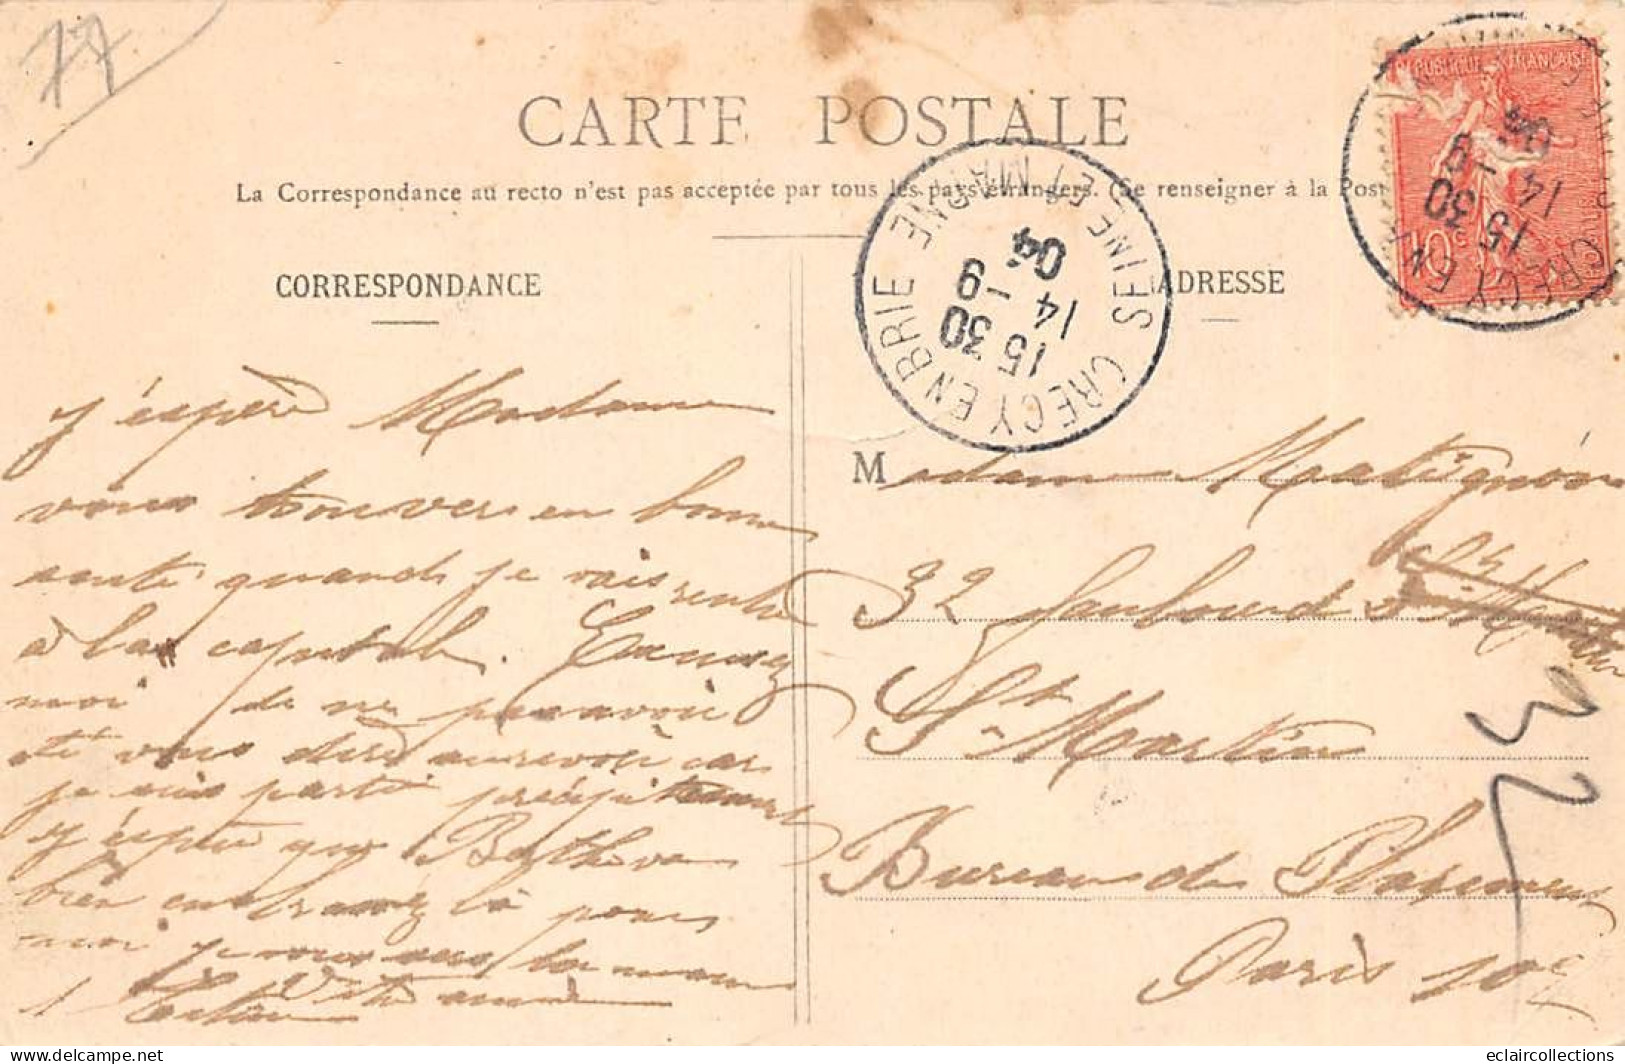 77
CARTE POSTALE
La Correspondance au recto n'est pas acceptée par tous les pays étrangers. (Se renseigner à la Post
CORRESPONDANCE
ADRESSE
RÉPUBLIQUE FRANÇAISE
10 c
CRECY EN BRIE SEINE ET MARNE
15 30
14 - 9
04
CRECY EN
15 30
14 - 9
04
j'éspère Madame
vous trouver en bonne
santé quand je vais rentré
à la capital. Excusez
moi de ne pas avoir
été vous dire aurevoir car
je suis parti précipitament
j'éspère que Berthe va
bien embrassez là pour
moi je vous sers la main
Votre ami
Madame Matignon
32 faubourd
St Martin
Bureau de Placement
Paris 10e
32
eclaircollections